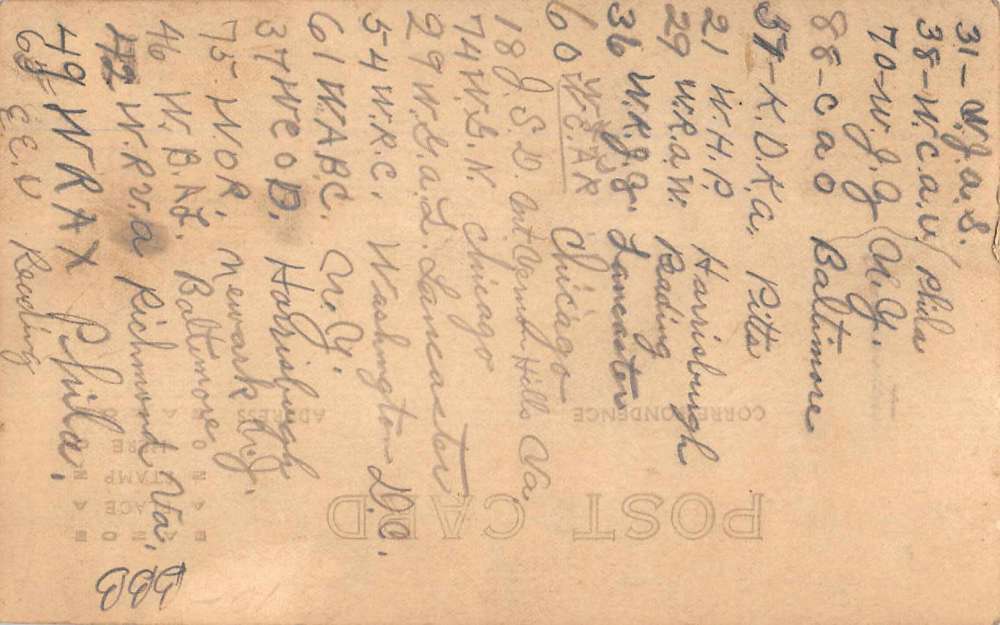 31 - W.J.a.S.
38 - W.C.a.U. Phila
70 - W.J.Z N.Y.
88 - C a O Baltimore
57 - K.D.K.a. Pitts
21 W.H.P. Harrisburgh
29 W.R.a.W. Reading
36 W.K.J.C. Lancaster
60 W.E.A.R Chicago
18 J.S.D. Hills Va.
74 W.S.N. Chicago
29 W.G.a.L. Lancaster
54 W.R.C. Washington D.C.
61 W.A.B.C. N.Y.
37 W C O D. Harrisburgh
75 - W O R. Newark N.J.
46 W.B.A.L. Baltimore
42 - W.R.V.a Richmond Va.
49 W R A X Phila.
69 E.E.U Reading
BBB
POST CARD
CORRESPONDENCE
ADDRESS
PLACE
STAMP
HERE